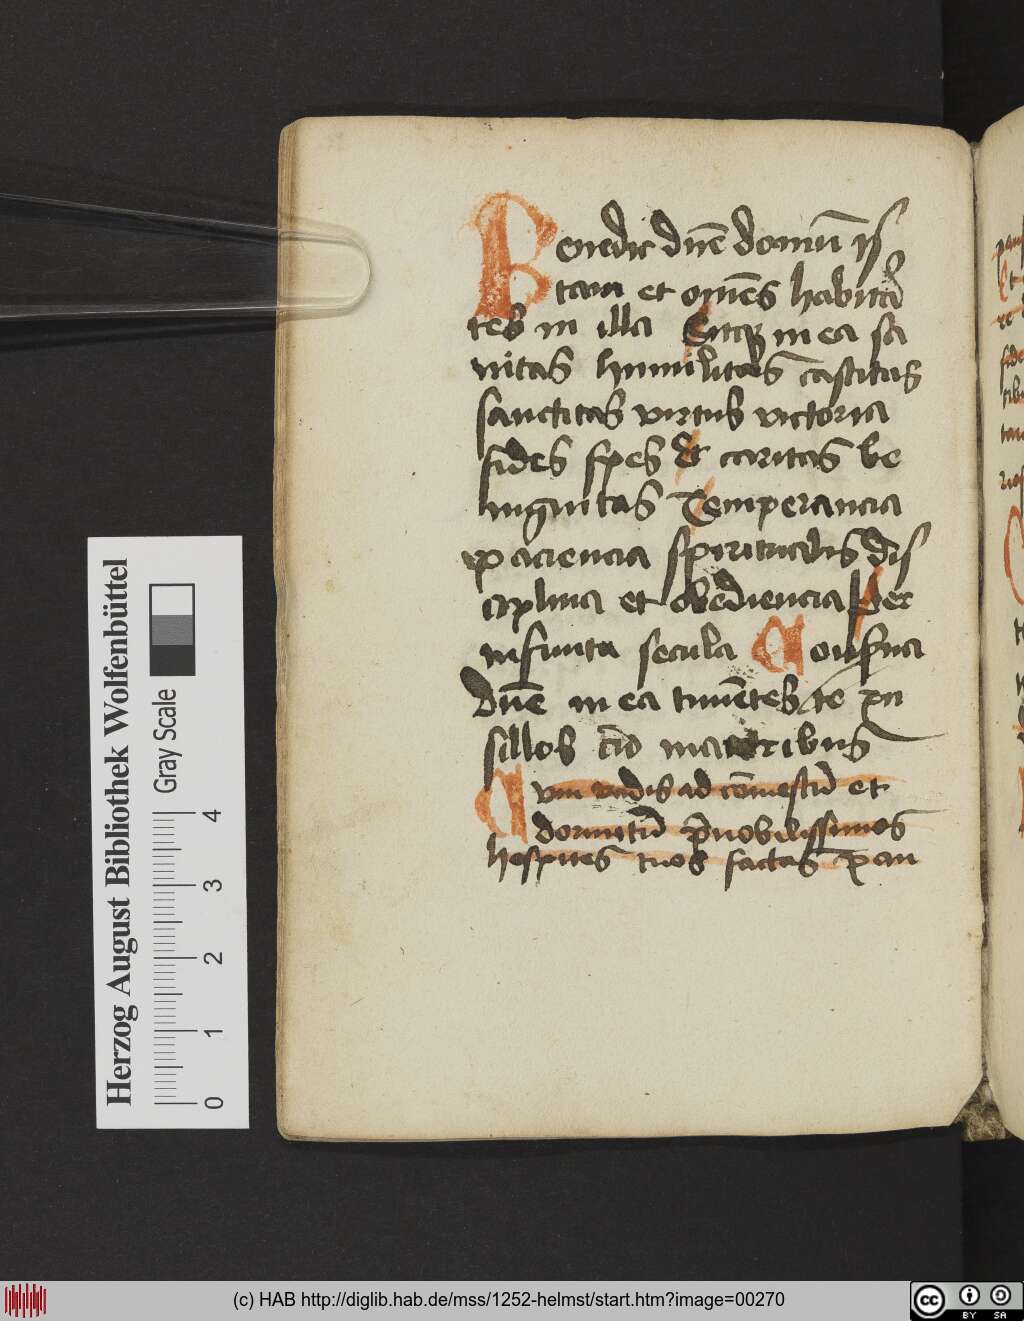 Benedic dn̄e domū is
tam et om̄es habitā
tes in illa Sitq; in ea sa
nitas humilitas castitas
sanctitas virtus victoria
fides spes Et caritas be
nignitas Temperancia
paciencia spiritualis dis
ciplina et obediencia Per
infinita secula
dn̄e in ea timētes te pu
sillos cū maioribus
Cum vadis ad cōmestū et
dormitū
hospites tuos factas
Herzog August Bibliothek Wolfenbüttel
Gray Scale
0 1 2 3 4
(c) HAB http://diglib.hab.de/mss/1252-helmst/start.htm?image=00270
cc BY SA